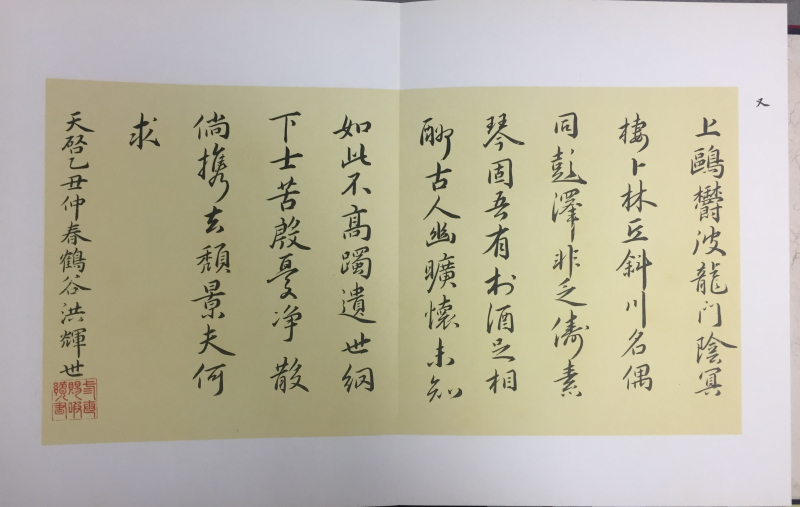 又
上鷗欝波龍门陰冥
棲卜林丘斜川名偶
同彭澤非乏儔素
琴固吾有村酒足相
聊古人幽曠懷未知
如此不高躅遺世網
下士苦殷憂净散
倘携去頹景夫何
求
天啓乙丑仲春鶴谷洪輝世